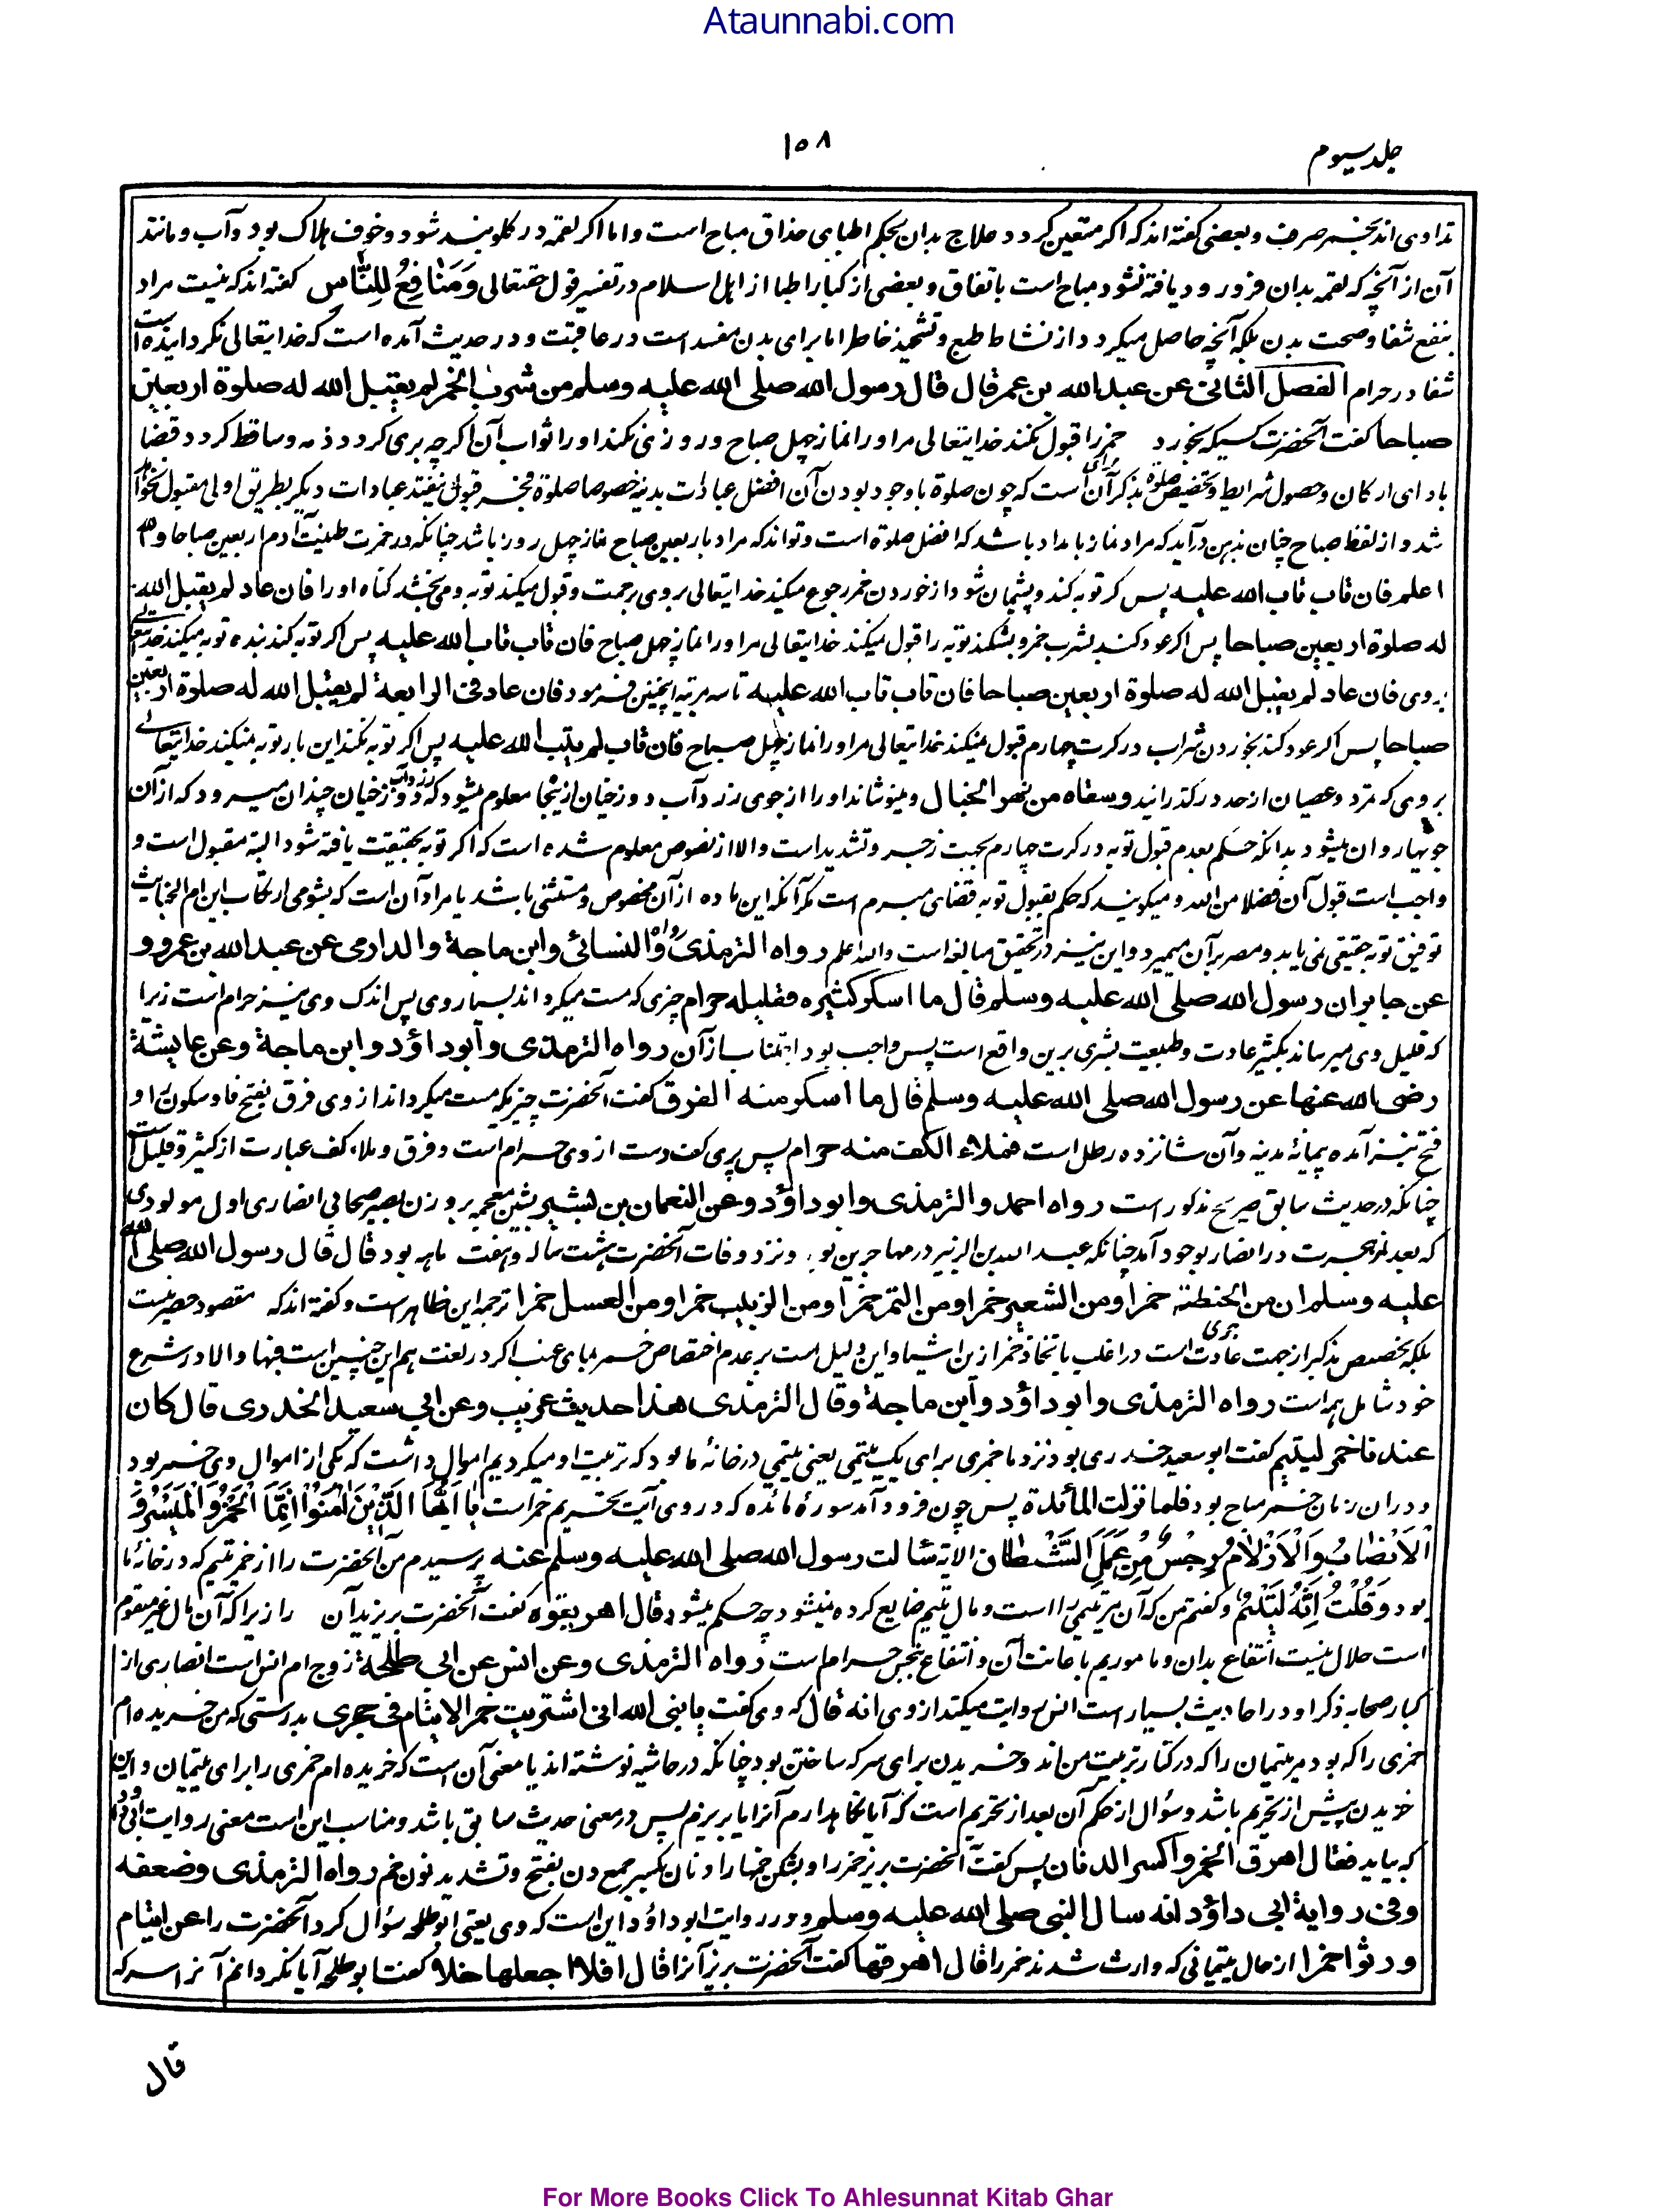 Ataunnabi.com
جلد سیوم
۱۵۸
تداوی اند بخمر صرف و بعضی گفته اند که اگر متعین گردد علاج بدان بحکم اطبای حذاق مباح است و اما اگر لقمه در گلو بند شود و خوف هلاک بود و آب و مانند
آن از آنچه که لقمه بدان فرو رود یافته نشود مباح است باتفاق و بعضی از کبار اطبا از اهل اسلام در تفسیر قول حقتعالی وَمَنَافِعُ لِلنَّاسِ گفته اند که نیست مراد
بنفع شفا و صحت بدن بلکه آنچه حاصل میگردد از نشاط طبع و تشحیذ خاطر اما برای بدن مفسد است در عاقبت و در حدیث آمده است که خدایتعالی نگردانیده است
شفا در حرام الفصل الثانی عن عبد الله بن عمر قال قال رسول الله صلی الله علیه وسلم من شرب الخمر لم یقبل الله له صلوة اربعین
صباحا گفت آنحضرت کسیکه بخورد خمر را قبول نکند خدایتعالی مر او را نماز چهل صباح و روزی نکند او را ثواب آن اگرچه بری گردد ذمه و ساقط گردد قضا
بادای ارکان و حصول شرایط و تخصیص صلوة بذکر برای آن است که چون صلوة با وجود بودن آن افضل عبادات بدنیه خصوصا صلوة فجر قبول نیفتد عبادات دیگر بطریق اولی مقبول نخواهد
شد و از لفظ صباح چنان بذهن درآید که مراد نماز بامداد باشد که افضل صلوة است و تواند که مراد باربعین صباح نماز چهل روز باشد چنانکه در خمرت طینت آدم اربعین صباحا والله
اعلم فان تاب تاب الله علیه پس گر توبه کند و پشیمان شود از خوردن خمر رجوع میکند خدایتعالی بر وی برحمت و قبول میکند توبه و می بخشد گناه او را فان عاد لم یقبل الله
له صلوة اربعین صباحا پس اگر عود کند بشرب خمر و بشکند توبه را قبول نمیکند خدایتعالی مر او را نماز چهل صباح فان تاب تاب الله علیه پس اگر توبه کند بنده توبه میکند خدایتعالی
بر وی فان عاد لم یقبل الله له صلوة اربعین صباحا فان تاب تاب الله علیه تا سه مرتبه اینچنین فرمود فان عاد فی الرابعة لم یقبل الله له صلوة اربعین
صباحا پس اگر عود کند بخوردن شراب در کرت چهارم قبول نمیکند خدایتعالی مر او را نماز چهل صباح فان تاب لم یتب الله علیه پس اگر توبه نکند این بار توبه نمیکند خدایتعالی
بر وی که تمرد و عصیان از حد در گذرانید وسقاه من نهر الخبال و مینوشاند او را از جوی زرد آب دوزخیان ازینجا معلوم میشود که زرد آب دوزخیان چندان میرود که از آن
جویها روان میشود بدانکه حکم بعدم قبول توبه در کرت چهارم بجهت زجر و تشدید است والا از نصوص معلوم شده است که اگر توبه بحقیقت یافته شود البته مقبول است و
واجب است قبول آن فضلا من الله و میگویند که حکم بقبول توبه قضای مبرم است مگر آنکه این ماده از آن مخصوص و مستثنی باشد یا مراد آن است که بشومی ارتکاب این ام الخبایث
توفیق توبه حقیقی نمی یابد و مصر بر آن میمیرد و این نیز در تحقیق مبالغه است والله اعلم رواه الترمذی ورواه النسائی وابن ماجة والدارمی عن عبد الله بن عمرو و
عن جابر ان رسول الله صلی الله علیه وسلم قال ما اسکر کثیره فقلیله حرام چیزی که مست میگرداند بسیار وی پس اندک وی نیز حرام است زیرا
که قلیل وی میرساند بکثیر عادت و طبیعت بشری برین واقع است پس واجب بود اجتناب از آن رواه الترمذی وابو داؤد وابن ماجة وعن عایشة
رضی الله عنها عن رسول الله صلی الله علیه وسلم قال ما اسکر منه الفرق گفت آنحضرت چیزیکه مست میگرداند از وی فرق بفتح فا و سکون را و
فتح نیز آمده پیمانۀ مدینه و آن شانزده رطل است فملاء الکف منه حرام پس پری کف دست از وی حرام است و فرق و ملاء کف عبارت از کثیر و قلیل است
چنانکه در حدیث سابق صریح مذکور است رواه احمد والترمذی وابو داؤد وعن النعمان بن بشیر بشین معجمه بر وزن بصیر صحابی انصاری اول مولودی
که بعد از هجرت در انصار بوجود آمد چنانکه عبد الله بن الزبیر در مهاجرین بود و نزد وفات آنحضرت هشت ساله و هفت ماهه بود قال قال رسول الله صلی الله
علیه وسلم ان من الحنطة خمرا ومن الشعیر خمرا ومن التمر خمرا ومن الزبیب خمرا ومن العسل خمرا ترجمه این ظاهر است و گفته اند که مقصود حصر نیست
بلکه تخصیص بذکر از جهت جری عادت است در اغلب باتخاذ خمر ازین اشیا و این دلیل است بر عدم اختصاص خمر بمای عنب اگر در لغت هم این چنین است فبها والا در شرع
خود شامل همه است رواه الترمذی وابو داؤد وابن ماجة وقال الترمذی هذا حدیث غریب وعن ابی سعید الخدری قال کان
عندنا خمر لیتیم گفت ابو سعید خدری بود نزد ما خمری برای یک یتیمی یعنی یتیمی در خانۀ ما بود که تربیت او میکردیم اموال داشت که یکی از اموال وی خمر بود
و دران زمان خمر مباح بود فلما نزلت المائدة پس چون فرود آمد سورۀ مائده که در وی آیت تحریم خمر است یَا اَیُّهَا الَّذِیْنَ اٰمَنُوْا اِنَّمَا الْخَمْرُ وَالْمَیْسِرُ وَ
الْاَنْصَابُ وَالْاَزْلَامُ رِجْسٌ مِنْ عَمَلِ الشَّیْطَانِ الایة سالت رسول الله صلی الله علیه وسلم عنه پرسیدم من آنحضرت را از خمر یتیم که در خانۀ ما
بود وَقُلْتُ اِنَّهُ لِیَتِیْمٍ و گفتم من که آن مر یتیمی را است و مال یتیم ضایع کرده نمیشود چه حکم میشود قال اهریقوه گفت آنحضرت بریزید آن را زیرا که آن مال غیر متقوم
است حلال نیست انتفاع بدان و ما موریم باهانت آن و انتفاع بنجس حرام ست رواه الترمذی وعن انس عن ابی طلحة زوج ام انس است انصاری از
کبار صحابه ذکر او در احادیث بسیار است انس روایت میکند از وی انه قال که وی گفت یا نبی الله انی اشتریت خمرا لایتام فی حجری بدرستی که من خریده ام
خمری را که بود مر یتیمان را که در کنار تربیت من اند و خریدن برای سرکه ساختن بود چنانکه در حاشیه نوشته اند یا معنی آن است که خریده ام خمری را برای یتیمان و این
خریدن پیش از تحریم باشد و سؤال از حکم آن بعد از تحریم است که آیا نگاهدارم آنرا یا بریزم پس در معنی حدیث سابق باشد و مناسب این است معنی روایت ابی داؤد
که بیاید فقال اهرق الخمر واکسر الدنان پس گفت آنحضرت بریز خمر را و بشکن خمها را و نان بکسر جمع دن بفتح و تشدید نون خم رواه الترمذی وضعفه
وفی روایة ابی داؤد انه سال النبی صلی الله علیه وسلم و در روایت ابو داؤد این است که وی یعنی ابو طلحه سؤال کرد آنحضرت را عن ایتام
ورثوا خمرا از حال یتیمانی که وارث شدند خمر را قال اهرقها گفت آنحضرت بریز آنرا قال افلا اجعلها خلا گفت ابو طلحه آیا نگردانم آنرا سرکه
قال
For More Books Click To Ahlesunnat Kitab Ghar